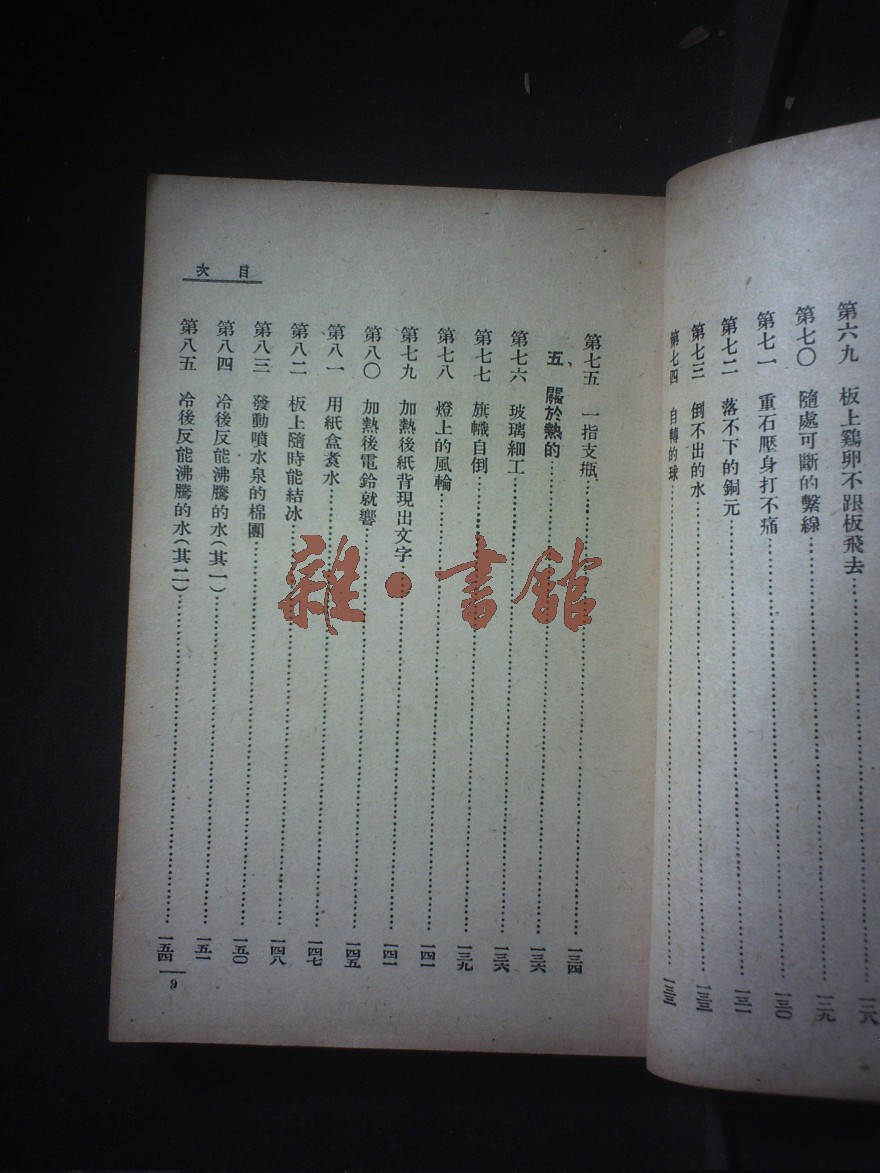 第六九 板上鷄卵不跟板飛去……一二八
第七〇 隨處可斷的繫線……一二九
第七一 重石壓身打不痛……一三〇
第七二 落不下的銅元……一三一
第七三 倒不出的水……一三三
第七四 自轉的球……一三三
目次
第七五 一指支瓶……一三四
五、關於熱的……一三六
第七六 玻璃細工……一三六
第七七 旗幟自倒……一三九
第七八 燈上的風輪……一四一
第七九 加熱後紙背現出文字……一四一
第八〇 加熱後電鈴就響……一四五
第八一 用紙盒煑水……一四七
第八二 板上隨時能結冰……一四八
第八三 發動噴水泉的棉團……一五〇
第八四 冷後反能沸騰的水(其一)……一五一
第八五 冷後反能沸騰的水(其二)……一五四
9
雜·書館